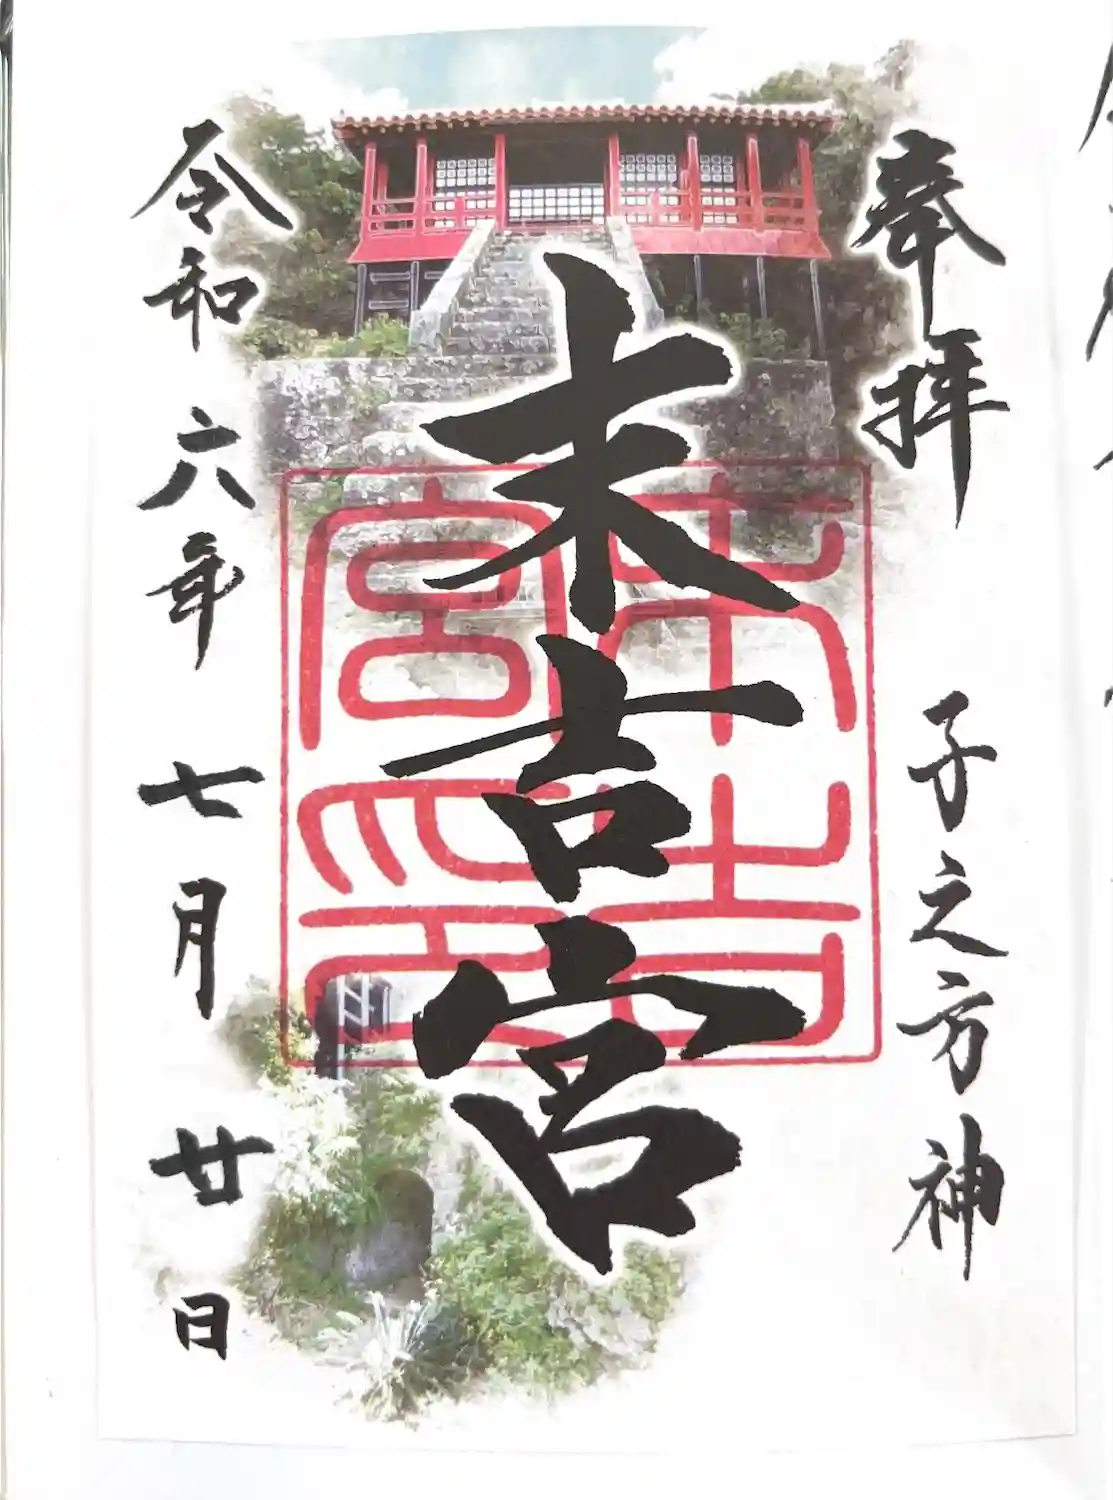 奉拝
子之方神
末吉宮
末吉
宮印
令和六年七月廿日